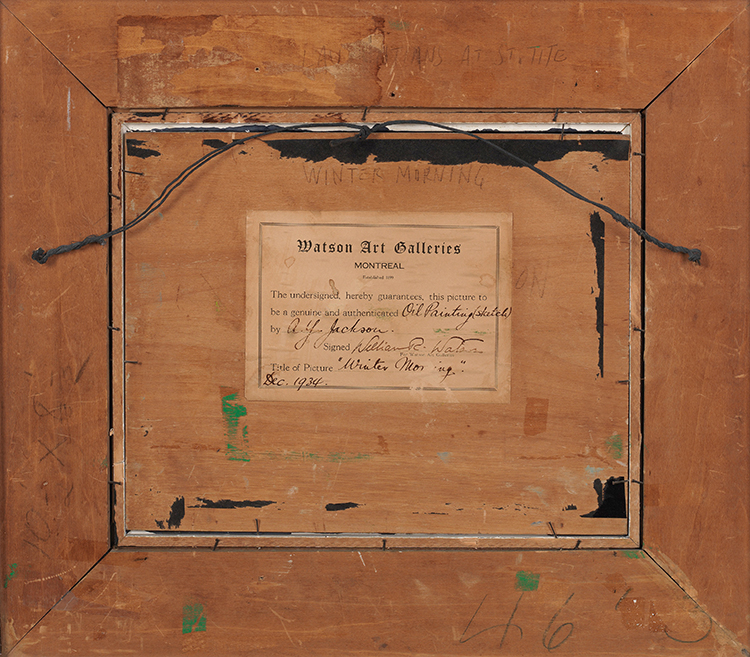 AT ST. TITE
WINTER MORNING
Watson Art Galleries
MONTREAL
The undersigned, hereby guarantees, this picture to
be a genuine and authenticated Oil Painting (sketch)
by A.Y. Jackson.
Signed William R. Watson
Per Watson Art Galleries
Title of Picture "Winter Mor ing".
Dec. 1934.